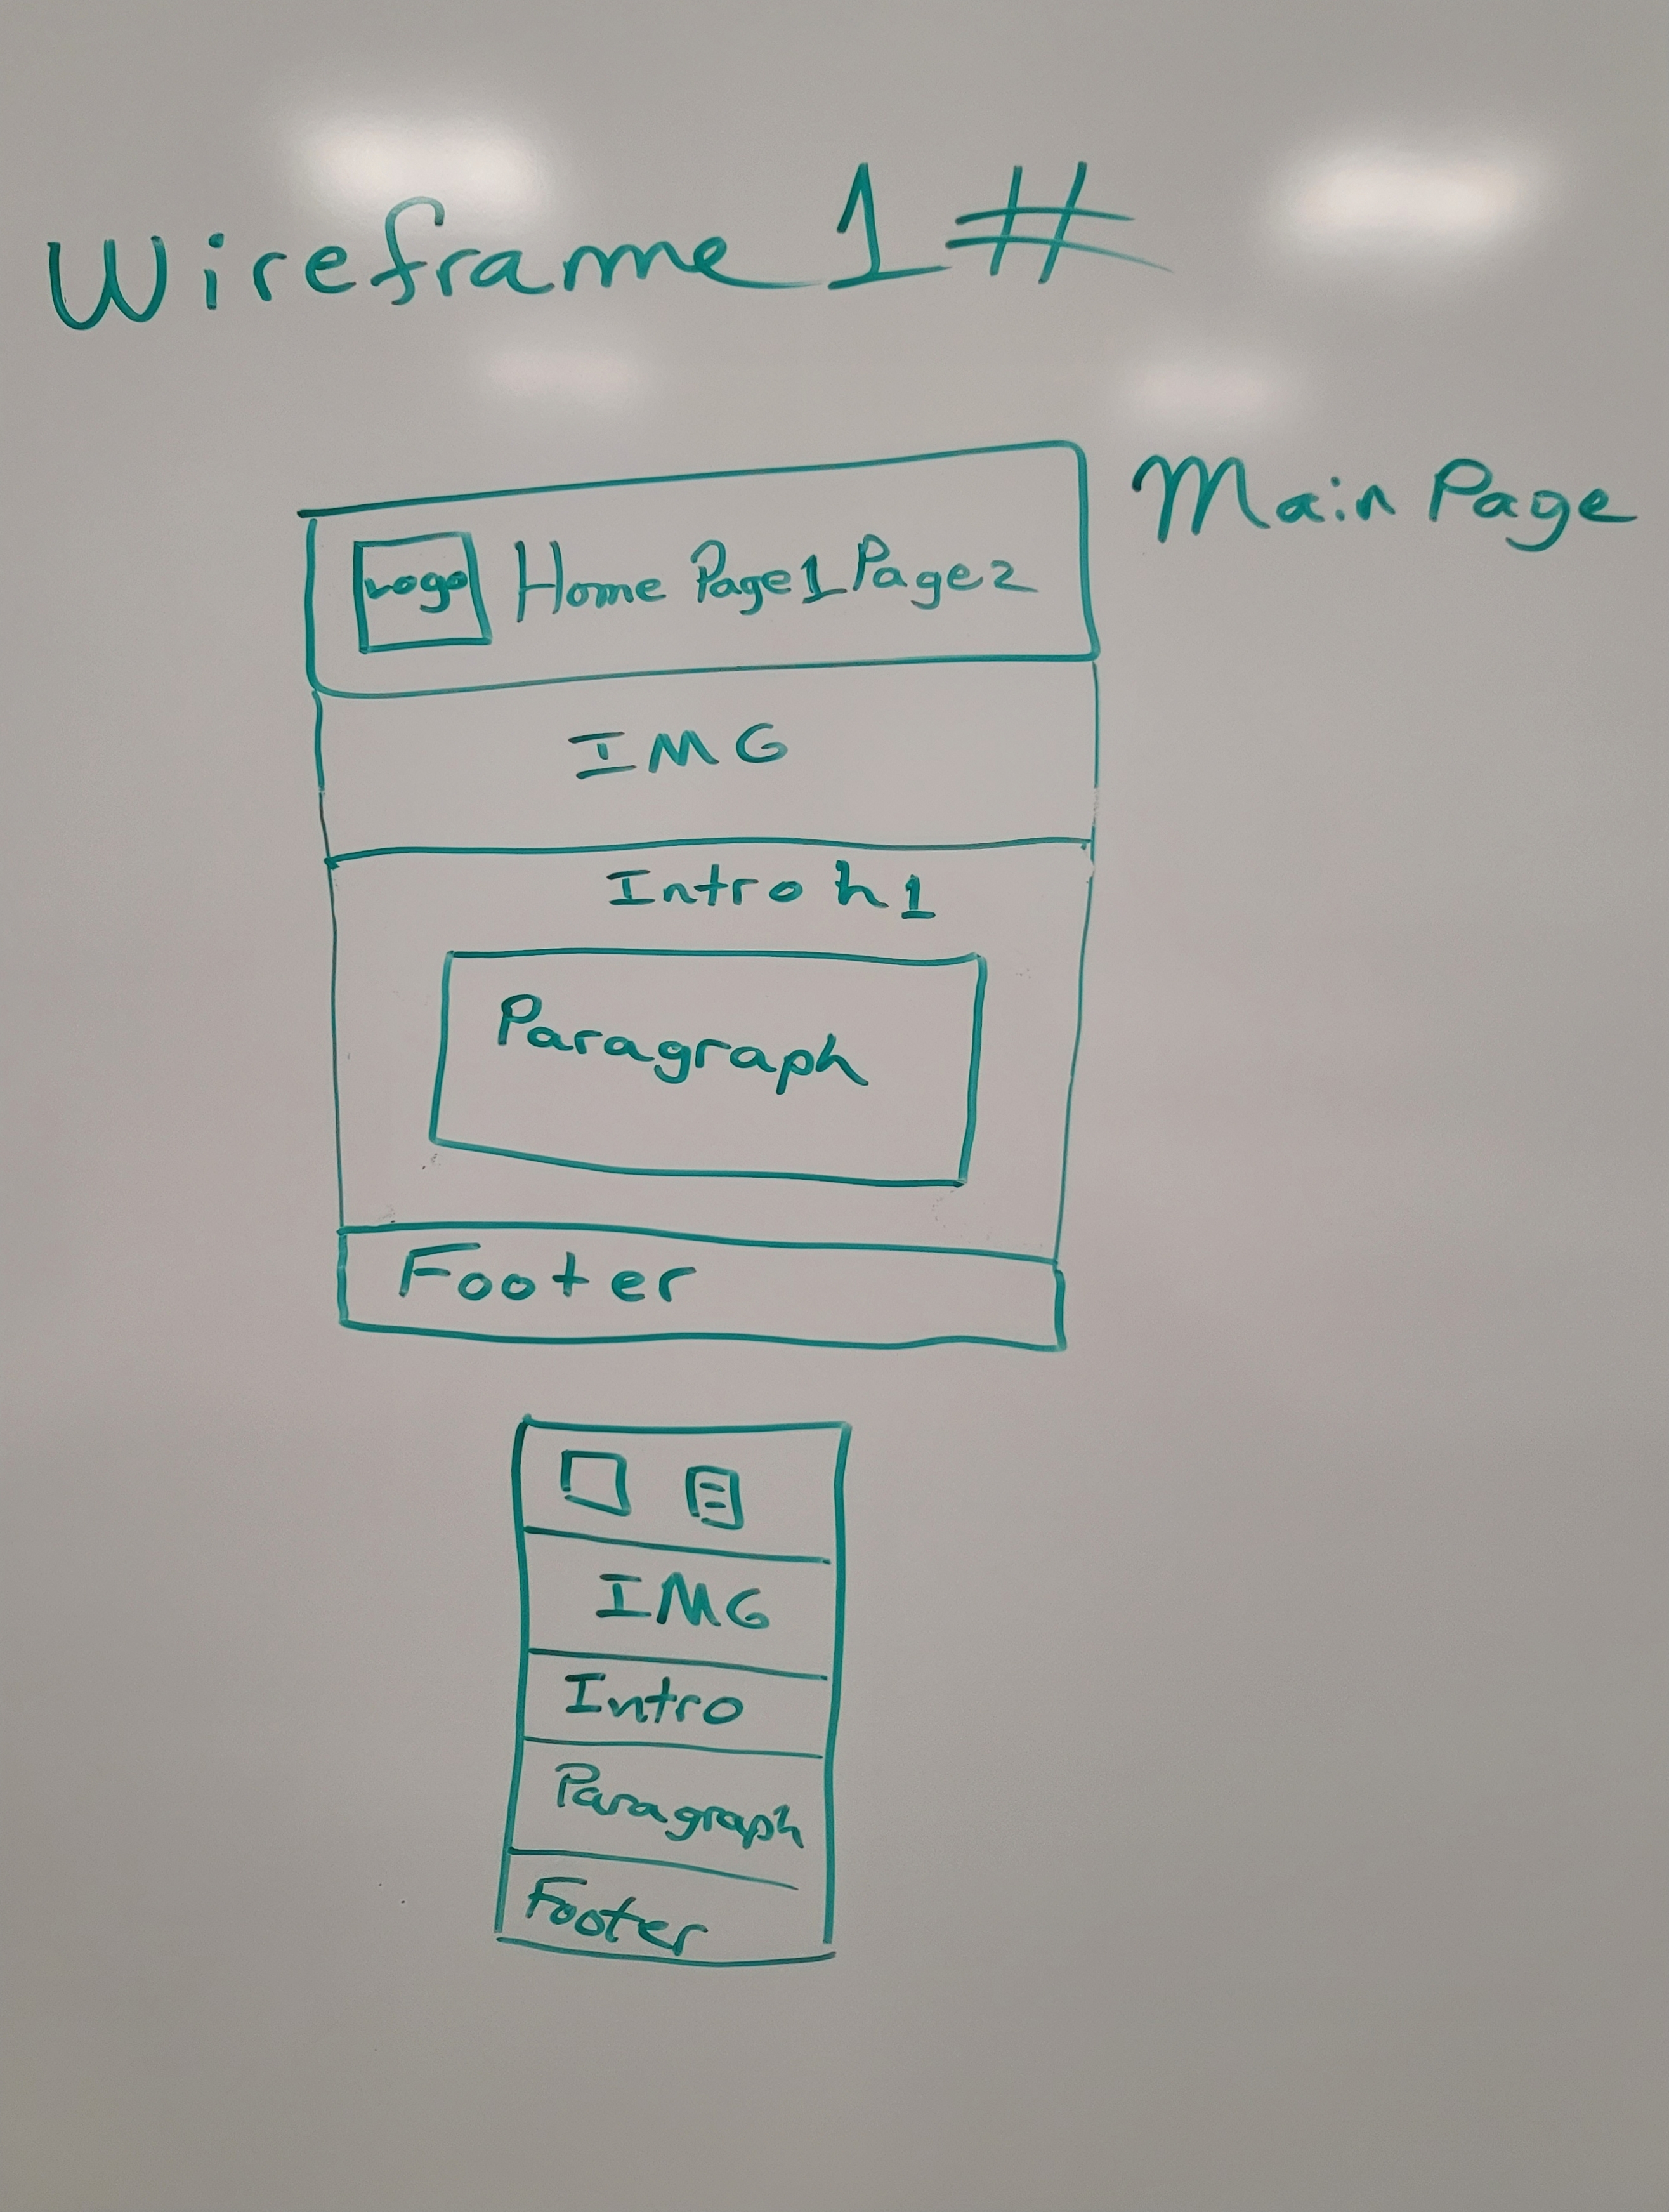 Wireframe 1 #
Main Page
Logo Home Page1 Page2
IMG
Intro h1
Paragraph
Footer
IMG
Intro
Paragraph
Footer